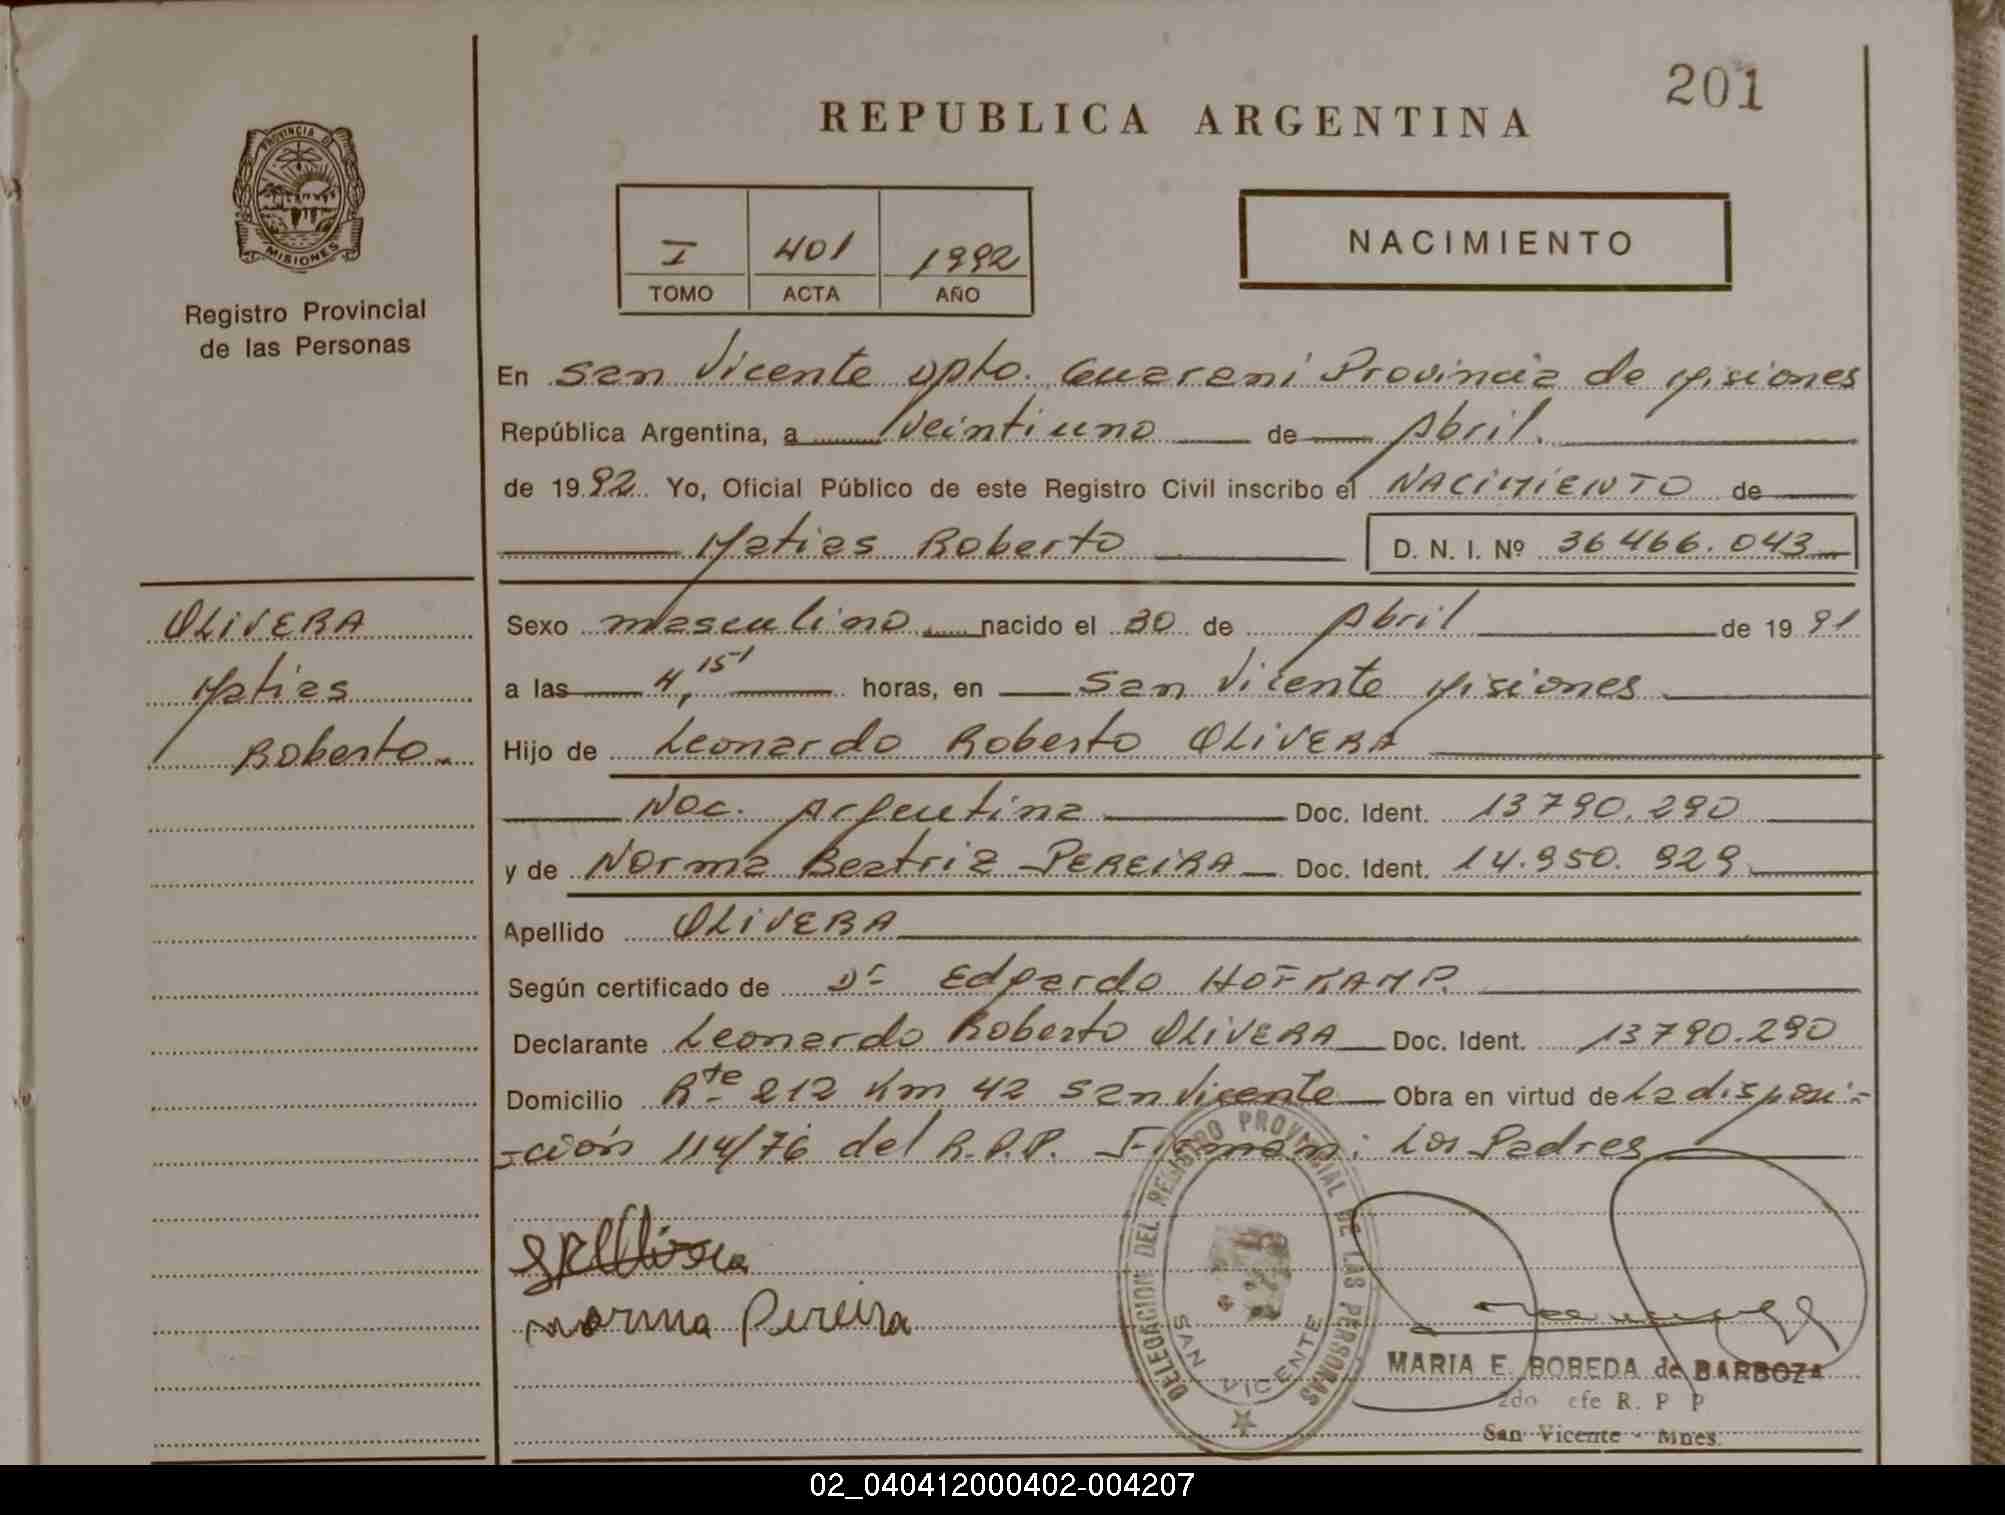 201
REPUBLICA ARGENTINA
PROVINCIA DE
MISIONES
Registro Provincial
de las Personas
I 401 1992
TOMO ACTA AÑO
NACIMIENTO
En San Vicente Dpto. Guarani Provincia de Misiones
República Argentina, a veintiuno de Abril.
de 1992. Yo, Oficial Público de este Registro Civil inscribo el NACIMIENTO de
Matias Roberto D. N. I. Nº 36466.043
OLIVERA
Matias
Roberto
Sexo masculino nacido el 30 de Abril de 1991
a las 4,15 horas, en San Vicente Misiones
Hijo de Leonardo Roberto OLIVERA
Nac. Argentina Doc. Ident. 13790.290
y de Norma Beatriz PEREIRA Doc. Ident. 14.950.929
Apellido OLIVERA
Según certificado de Dr Edgardo HOFKAMP.
Declarante Leonardo Roberto OLIVERA Doc. Ident. 13790.290
Domicilio Rte 212 Km 42 San Vicente Obra en virtud de la disposi-
-ción 114/76 del R.P.P. Firman: Los Padres
Norma Pereira
DELEGACION DEL REGISTRO PROVINCIAL DE LAS PERSONAS
SAN VICENTE
MARIA E. BOBEDA de BARBOZA
2do efe R. P P
San Vicente - Mnes.
02_040412000402-004207